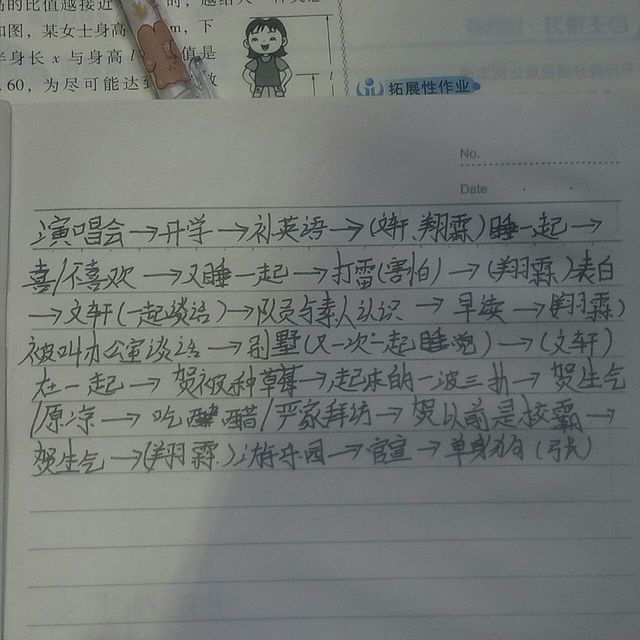 的比值越接近 时，越给人一种美感
如图，某女士身高 m，下
半身长 x 与身高 l 值是
.60，为尽可能达到 效
拓展性作业
No.
Date
演唱会→开学→补英语→(文轩、翔霖)睡一起→
喜/不喜欢→又睡一起→打雷(害怕)→(翔霖)表白
→文轩(一起谈话)→队员与素人认识→早读→(翔霖)
被叫办公室谈话→别墅(又一次一起睡觉)→(文轩)
在一起→贺被种草莓→起床的一波三折→贺生气
/原凉→吃醋/严家拜访→贺以前是校霸→
贺生气→(翔霖)游乐园→官宣→单身狗(张)